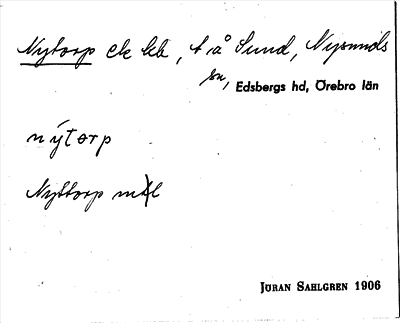 Nytorp ck lä, t. å Sund, Nysunds
sn, Edsbergs hd, Örebro län
nýtorp
Nyttorp mtl
JÖRAN SAHLGREN 1906